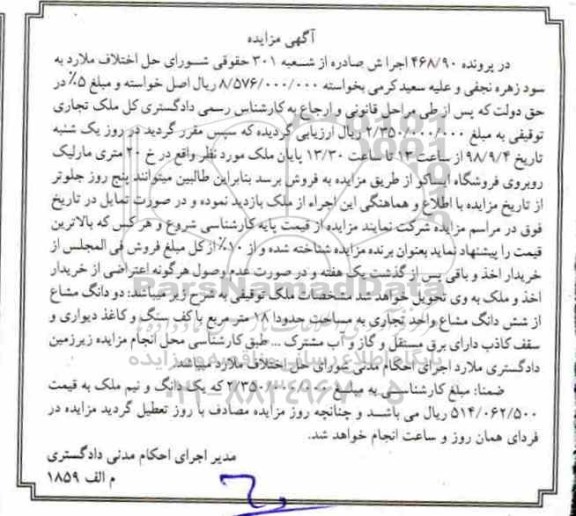 آگهی مزایده
در پرونده ۴۶۸/۹۰ اجرا ش صادره از شعبه ۳۰۱ حقوقی شورای حل اختلاف ملارد به
سود زهره نجفی و علیه سعید کرمی بخواسته ۸/۵۷۶/۰۰۰/۰۰۰ ریال اصل خواسته و مبلغ ۵٪ در
حق دولت که پس از طی مراحل قانونی و ارجاع به کارشناس رسمی دادگستری کل ملک تجاری
توقیفی به مبلغ ۲/۳۵۰/۰۰۰/۰۰۰ ریال ارزیابی گردیده که سپس مقرر گردید در روز یک شنبه
تاریخ ۹۸/۹/۴ از ساعت ۱۳ تا ساعت ۱۳/۳۰ پایان ملک مورد نظر واقع در خ ۲۰ متری مارلیک
روبروی فروشگاه ایساکو از طریق مزایده به فروش برسد بنابراین طالبین میتوانند پنج روز جلوتر
از تاریخ مزایده با اطلاع و هماهنگی این اجراء از ملک بازدید نموده و در صورت تمایل در تاریخ
فوق در مراسم مزایده شرکت نمایند مزایده از قیمت پایه کارشناسی شروع و هر کس که بالاترین
قیمت را پیشنهاد نماید بعنوان برنده مزایده شناخته شده و از ۱۰٪ از کل مبلغ فروش فی المجلس از
خریدار اخذ و باقی پس از گذشت یک هفته و در صورت عدم وصول هرگونه اعتراضی از خریدار
اخذ و ملک به وی تحویل خواهد شد مشخصات ملک توقیفی به شرح زیر میباشد: دو دانگ مشاع
از شش دانگ مشاع واحد تجاری به مساحت حدودا ۱۸ متر مربع با کف سنگ و کاغذ دیواری و
سقف کاذب دارای برق مستقل و گاز و آب مشترک ... طبق کارشناسی محل انجام مزایده زیرزمین
دادگستری ملارد اجرای احکام مدنی شورای حل اختلاف ملارد میباشد.
ضمنا: مبلغ کارشناسی به مبلغ ۲/۳۵۰/۰۰۰/۰۰۰ که یک دانگ و نیم ملک به قیمت
۵۱۴/۰۶۲/۵۰۰ ریال می باشد و چنانچه روز مزایده مصادف با روز تعطیل گردید مزایده در
فردای همان روز و ساعت انجام خواهد شد.
مدیر اجرای احکام مدنی دادگستری
م الف ۱۸۵۹